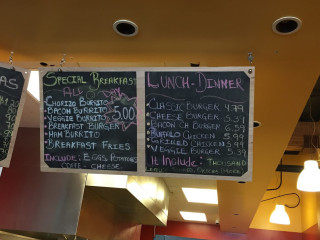 AS
SPECIAL BREAKFAST
ALL OF DAY
• CHORIZO BURRITO
• BACON BURRITO
• VEGGIE BURRITO
5.00
• BREAKFAST BURGER
• HAM BURRITO
• BREAKFAST FRIES
INCLUDE: EGGS, POTATOES
CHEESE
LUNCH-DINNER
• CLASSIC BURGER 4.79
• CHEESE BURGER 5.39
• BACON CH BURGER 6.59
• BUFFALO CHICKEN 5.99
• GRILLED CHICKEN 5.99
• VEGGIE BURGER 5.39
It INCLUDE: THOUSAND